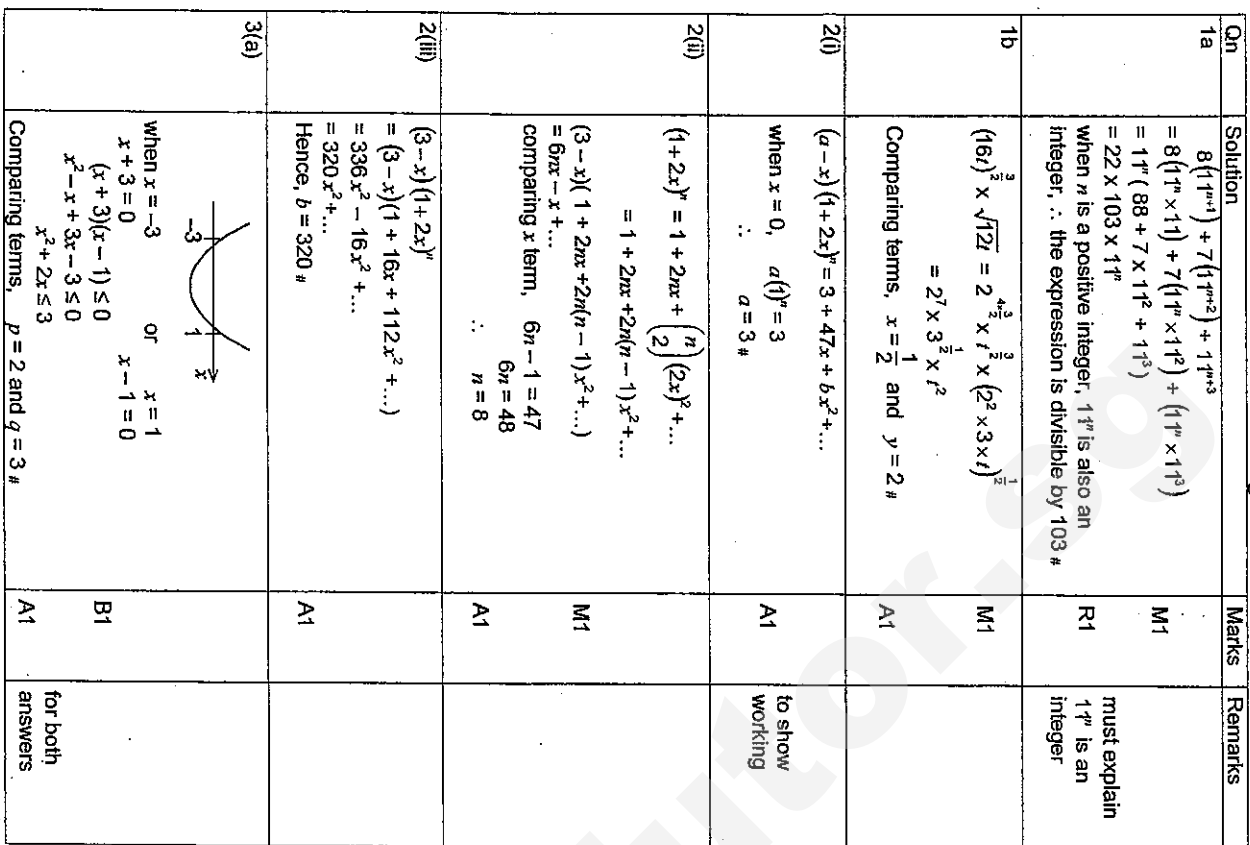 Qn Solution Marks Remarks
1a 8(11ⁿ⁺¹) + 7(11ⁿ⁺²) + 11ⁿ⁺³
= 8(11ⁿ × 11) + 7(11ⁿ × 11²) + (11ⁿ × 11³) M1
= 11ⁿ ( 88 + 7 × 11² + 11³ )
= 22 × 103 × 11ⁿ
when n is a positive integer, 11ⁿ is also an R1 must explain
integer, ∴ the expression is divisible by 103 # 11ⁿ is an
integer
1b (16t)^(3/2) × √12t = 2^(4×3/2) × t^(3/2) × (2² × 3 × t)^(1/2) M1
= 2⁷ × 3^(1/2) × t²
Comparing terms, x = 1/2 and y = 2 # A1
2(i) (a − x)(1 + 2x)ⁿ = 3 + 47x + bx² + ...
when x = 0, a(1)ⁿ = 3 to show
∴ a = 3 # A1 working
2(ii) (1 + 2x)ⁿ = 1 + 2nx + (n 2)(2x)² + ...
= 1 + 2nx + 2n(n − 1)x² + ...
(3 − x)( 1 + 2nx + 2n(n − 1)x² + ...) M1
= 6nx − x + ...
comparing x term, 6n − 1 = 47
6n = 48
∴ n = 8 A1
2(iii) (3 − x)(1 + 2x)ⁿ
= (3 − x)(1 + 16x + 112x² + ...)
= 336x² − 16x² + ...
= 320x² + ...
Hence, b = 320 # A1
3(a)
−3 1 x
when x = −3 or x = 1
x + 3 = 0 x − 1 = 0
(x + 3)(x − 1) ≤ 0 B1
x² − x + 3x − 3 ≤ 0
x² + 2x ≤ 3 for both
Comparing terms, p = 2 and q = 3 # A1 answers
tutor.sg